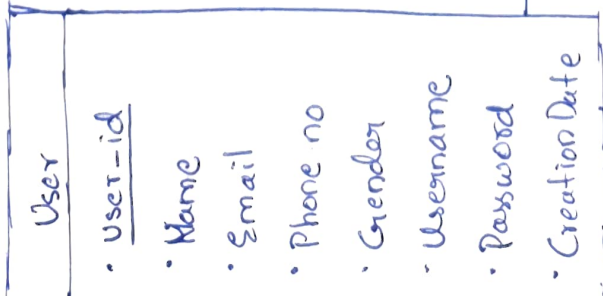 User
• User-id
• Name
• Email
• Phone no
• Gender
• Username
• Password
• Creation Date